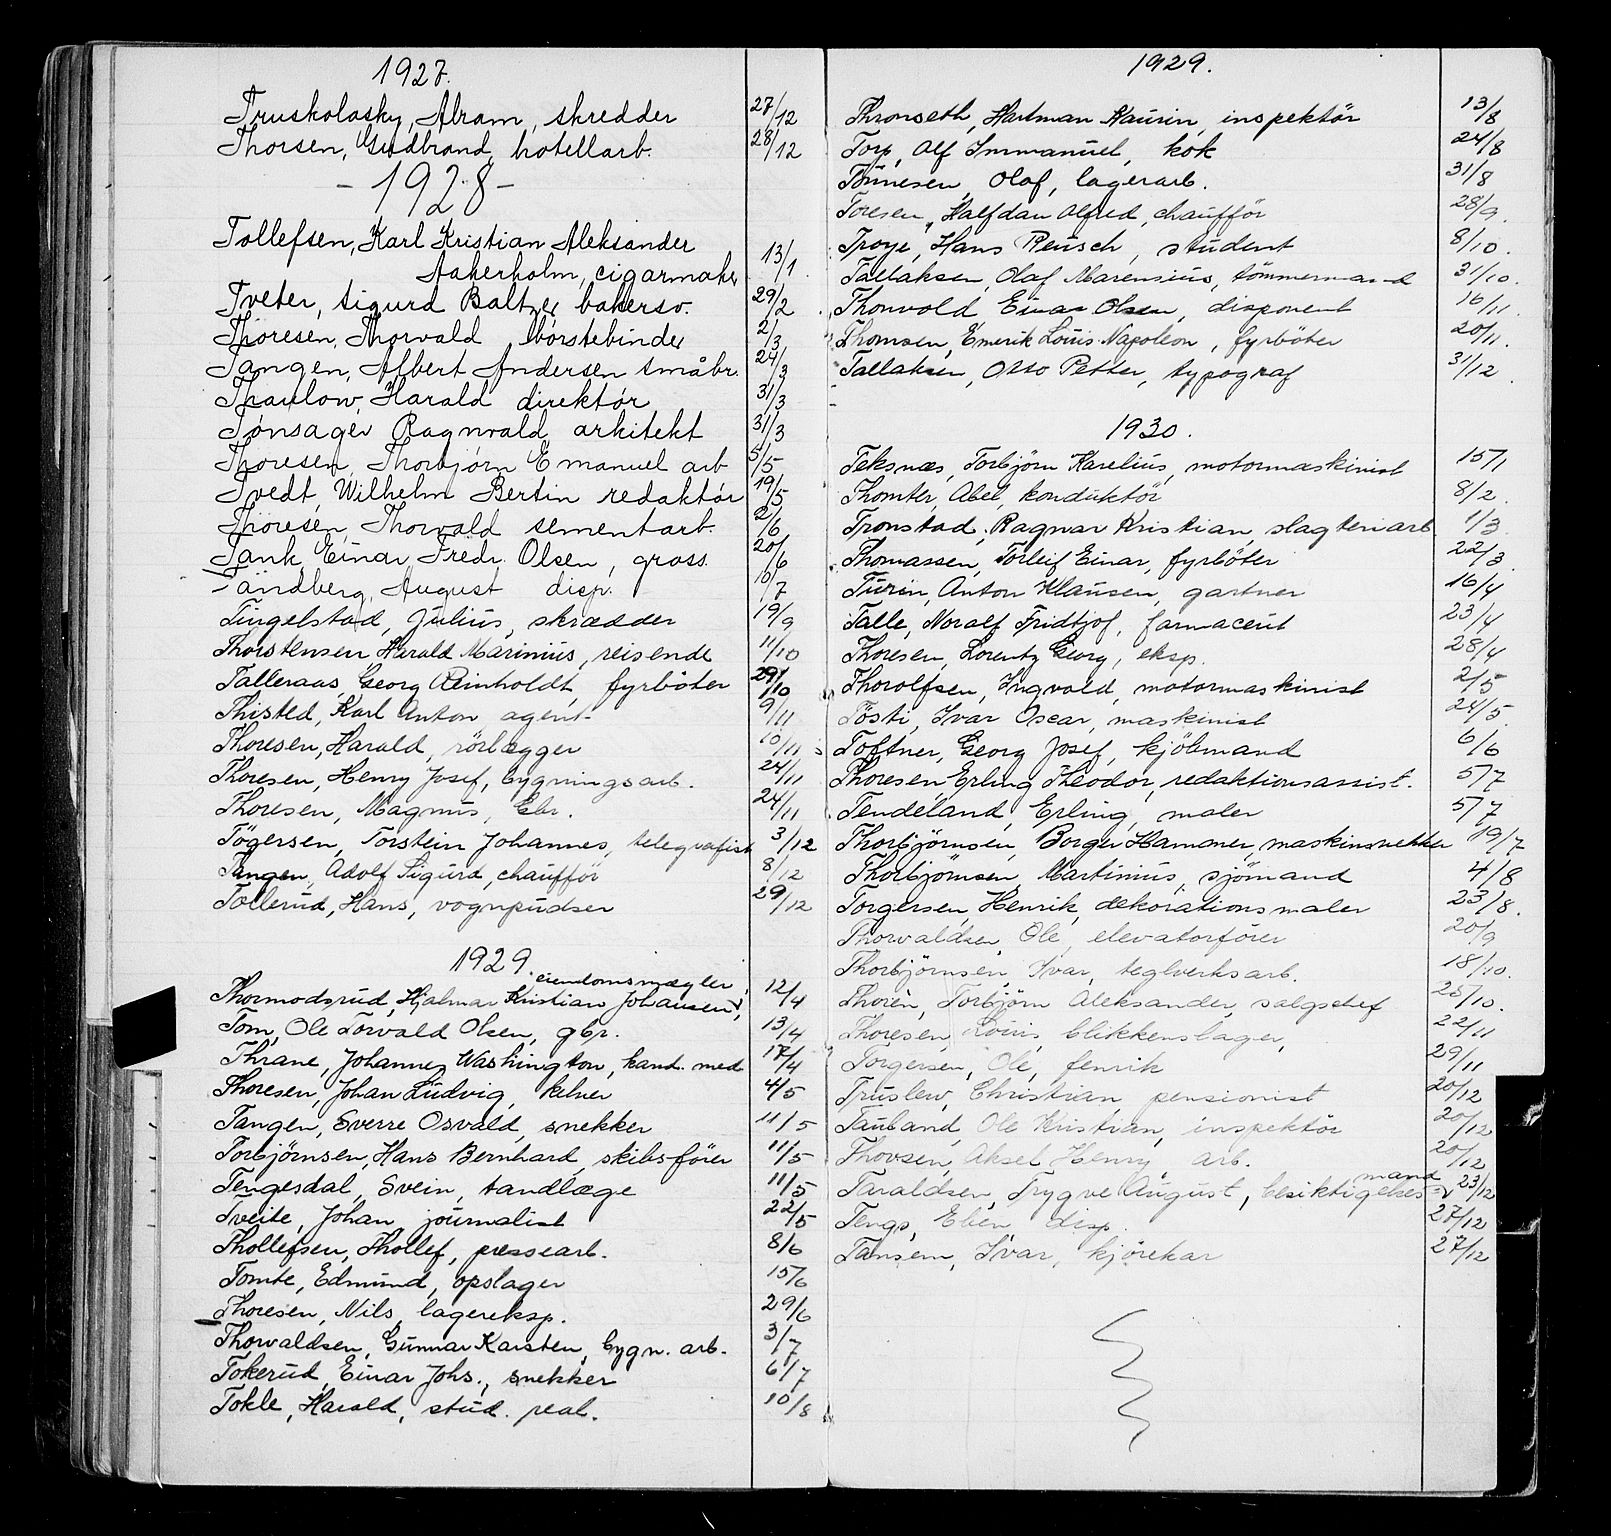 1927.
Truskolasky, Abram, skredder 27/12
Thorsen, Gudbrand, hotellarb. 28/12
- 1928 -
Tollefsen, Karl Kristian Aleksander
Aakerholm, cigarmaker 13/1
Tveter, Sigurd Baltzer bakersv. 29/2
Thoresen, Thorvald børstebinder 2/3
Tangen, Albert Andersen småbr. 24/3
Thaulow, Harald direktór 31/3
Tønsager Ragnvald arkitekt 31/3
Thoresen, Thorbjørn Emanuel arb 5/5
Tvedt, Wilhelm Bertin redaktór 19/5
Thoresen, Thorvald sementarb. 2/6
Tank, Einar Fredr. Olsen, gross. 20/6
Tandberg, August disp. 10/7
Tingelstad, Julius, skrædder 19/9
Thorstensen Harald Marinius, reisende 11/10
Talleraas, Georg Reinholdt, fyrböter 29/10
Thisted, Karl Anton agent- 9/11
Thoresen, Harald, rörlægger 10/11
Thoresen, Henry Josef, bygningsarb. 24/11
Thoresen, Magnus, Gbr. 24/11
Tögersen, Torstein Johannes, telegrafist 3/12
Tangen, Adolf Sigurd, chaufför 8/12
Tollerud, Hans, vognpudser 29/12
1929.
eiendomsmægler,
Thormodsrud, Hjalmar Kristian Johansen, 12/4
Tom, Ole Torvald Olsen, gbr. 13/4
Thrane, Johannes Washington, kand. med 17/4
Thoresen, Johan Ludvig, kelner 4/5
Tangen, Sverre Osvald, snekker 11/5
Torbjörnsen, Hans Bernhard, skibsförer 11/5
Tengesdal, Svein, tandlæge 11/5
Tveite, Johan journalist 22/5
Thollefsen, Thollef, pressearb. 8/6
Tomte, Edmund, opslager 15/6
Thoresen, Nils, lagereksp. 29/6
Thorvaldsen, Gunnar Karsten, bygn. arb. 3/7
Tokerud, Einar Johs., snekker 6/7
Tokle, Harald, stud. real. 10/8
1929.
Thronseth, Hartman Haurin, inspektör 13/8
Torp, Alf Immanuel, kok 24/8
Tönnesen, Olaf, lagerarb. 31/8
Toresen, Halfdan Alfred, chaufför 28/9
Troye, Hans Reusch, student 8/10.
Tallaksen, Olaf Marensius, tömmermand 31/10.
Thonvold Einar Olsen, disponent 16/11
Thomsen, Emerik Louis Napoleon, fyrböter 20/11.
Tallaksen, Otto Petter, typograf 31/12.
1930.
Teksnæs, Torbjörn Karelius, motormaskinist 15/1
Thomter, Abel, konduktör 8/2.
Tronstad, Ragnar Kristian, slagteriarb 1/3.
Thomassen, Torleif Einar, fyrböter 22/3.
Turin, Anton Klausen, gartner 16/4
Talle, Noralf Fridtjof, farmaceut 23/4
Thoresen, Lorentz Georg, eksp. 28/4
Thorolfsen, Ingvald, motormaskinist 2/5
Tösti, Ivar Oscar, maskinist 24/5.
Toftner, Georg Josef, kjöbmand 6/6
Thoresen, Erling Theodor, redaktionsassist. 5/7
Tendeland, Erling, maler 5/7
Thorbjörnsen, Borger Hammer, maskinsnekker 19/7
Thorbjörnsen Martinius, sjömand 4/8
Torgersen, Henrik, dekorationsmaler 23/8.
Thorvaldsen, Ole, elevatorförer 20/9
Thorbjörnsen, Ivar, teglverksarb. 18/10.
Thorén, Torbjörn Aleksander, salgschef 25/10.
Thoresen, Louis, blikkenslager, 22/11
Torgersen, Ole, fenrik 29/11
Truslew, Christian pensionist 20/12
Tauband, Ole Kristian, inspektör 20/12
Thovsen, Aksel Henry, arb. 20/12
mand
Taraldsen, Trygve August, besiktigelses- 23/12
Tengs, Elien disp. 27/12
Tansem, Ivar, kjörekar 27/12